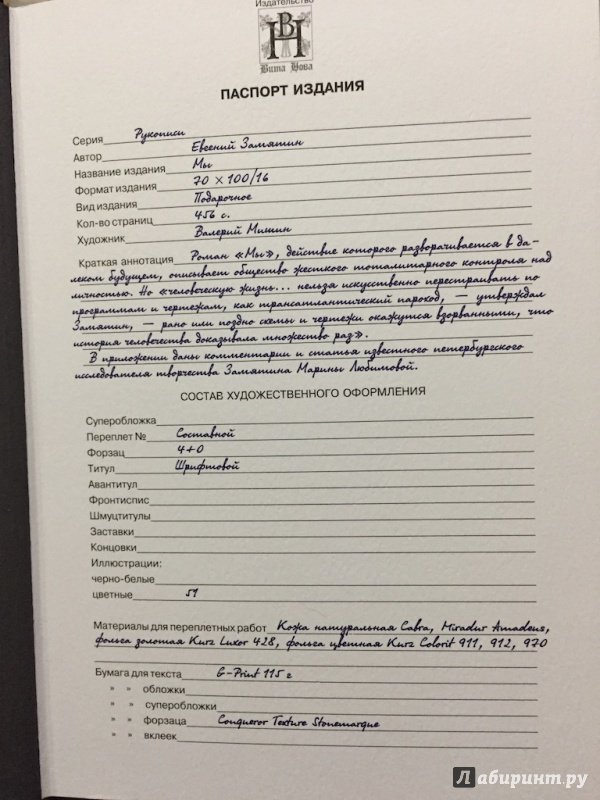 Издательство
ВН
Вита Нова
ПАСПОРТ ИЗДАНИЯ
Серия Рукописи
Автор Евгений Замятин
Название издания Мы
Формат издания 70 × 100/16
Вид издания Подарочное
Кол-во страниц 456 с.
Художник Валерий Мишин
Краткая аннотация Роман «Мы», действие которого разворачивается в да-
леком будущем, описывает общество жесткого тоталитарного контроля над
личностью. Но «человеческую жизнь... нельзя искусственно перестраивать по
программам и чертежам, как трансатлантический пароход, — утверждал
Замятин, — рано или поздно схемы и чертежи окажутся взорванными, что
история человечества доказывала множество раз».
В приложении даны комментарии и статья известного петербургского
исследователя творчества Замятина Марины Любимовой.
СОСТАВ ХУДОЖЕСТВЕННОГО ОФОРМЛЕНИЯ
Суперобложка
Переплет № Составной
Форзац 4+0
Титул Шрифтовой
Авантитул
Фронтиспис
Шмуцтитулы
Заставки
Концовки
Иллюстрации:
черно-белые
цветные 51
Материалы для переплетных работ Кожа натуральная Cabra, Miradur Amadeus,
фольга золотая Kurz Luxor 428, фольга цветная Kurz Colorit 911, 912, 970
Бумага для текста G-Print 115 г
» » обложки
» » суперобложки
» » форзаца Conqueror Texture Stonemarque
» » вклеек
Лабиринт.ру